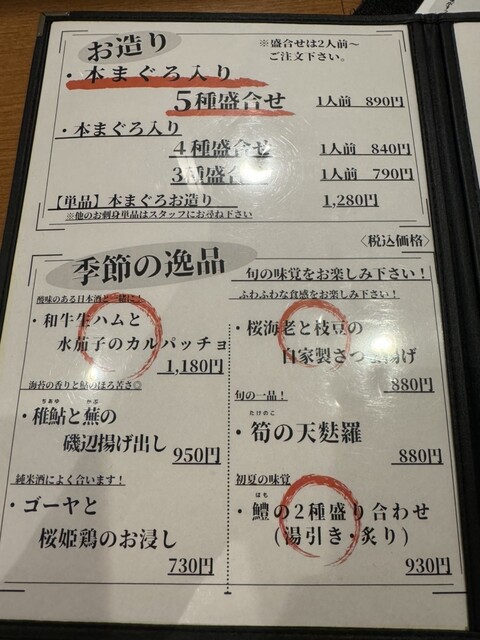 お造り
※盛合せは2人前～
ご注文下さい。
・本まぐろ入り
5種盛合せ 1人前 890円
・本まぐろ入り
4種盛合せ 1人前 840円
3種盛合せ 1人前 790円
【単品】本まぐろお造り 1,280円
※他のお刺身単品はスタッフにお尋ね下さい
〈税込価格〉
季節の逸品
旬の味覚をお楽しみ下さい！
酸味のある日本酒と一緒に！
・和牛生ハムと
水茄子のカルパッチョ
1,180円
海苔の香りと鮎のほろ苦さ◎
ちあゆ かぶ
・稚鮎と蕪の
磯辺揚げ出し 950円
純米酒によく合います！
・ゴーヤと
桜姫鶏のお浸し
730円
ふわふわな食感をお楽しみ下さい！
・桜海老と枝豆の
自家製さつま揚げ
880円
旬の一品！
たけのこ
・筍の天麩羅
880円
初夏の味覚
はも
・鱧の2種盛り合わせ
(湯引き・炙り)
930円